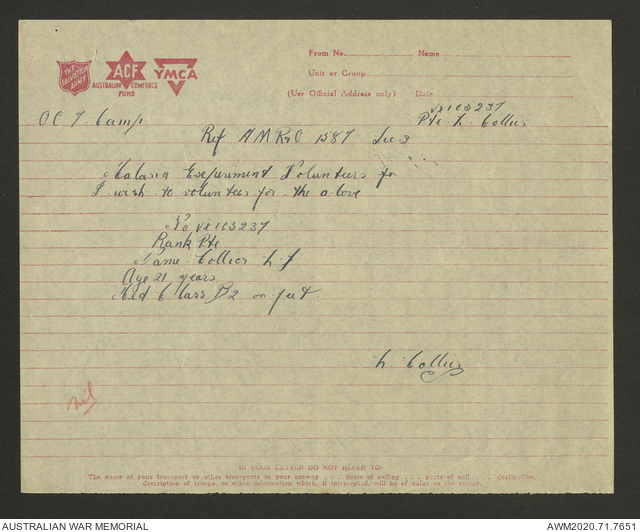 THE SALVATION ARMY
ACF
AUSTRALIAN COMFORTS FUND
YMCA
From No. Name
Unit or Group
(Use Official Address only) Date
VX105237
O C T. Camp Pte L. Collier
Ref A M R & O 1587 Sec 3
Malaria Experiment Volunteers for
I wish to volunteer for the above
No VX105237
Rank Pte
Name Collier L J
Age 21 years
Med Class B2 on feet.
L. Collier
nil
IN YOUR LETTER DO NOT REFER TO:
The name of your transport or other transports in your convoy ... dates of sailing ... ports of call ... destination.
description of troops, or other information which, if intercepted, will be of value to the enemy.
AUSTRALIAN WAR MEMORIAL AWM2020.71.7651